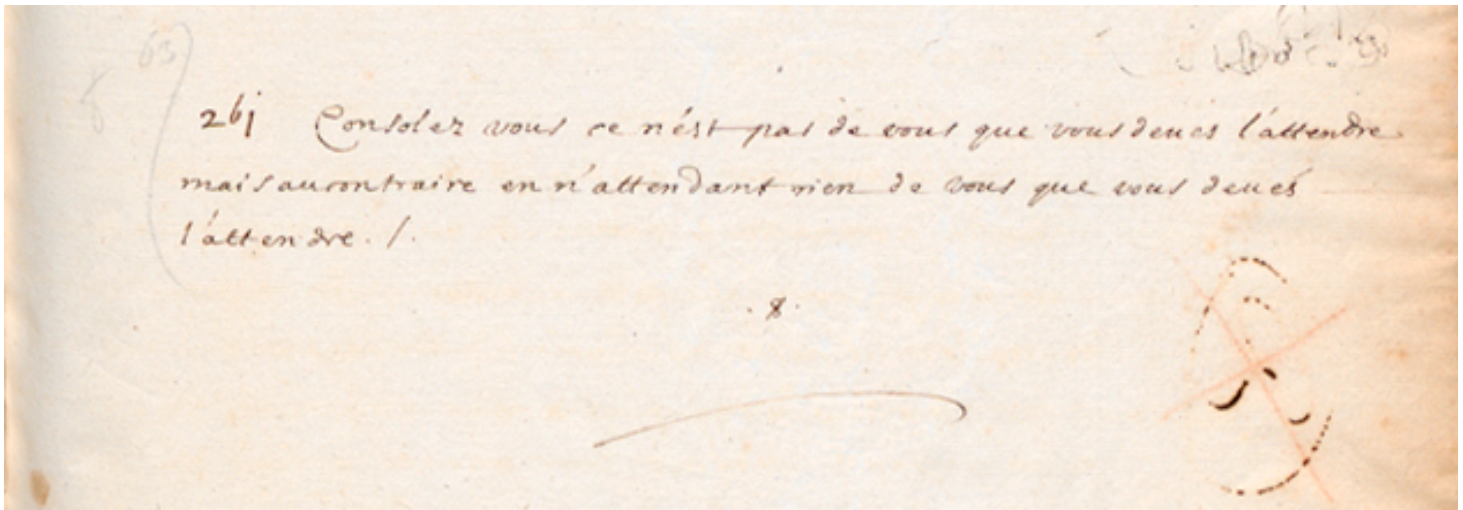 261 Consolez vous ce n'ést pas de vous que vous deues l'áttendre
mais aucontraire en n'attendant rien de vous que vous deués
l'áttendre. /.